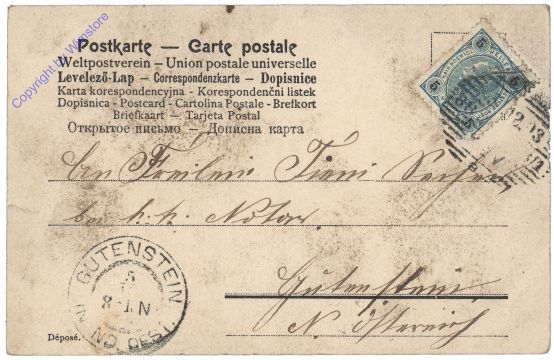 Postkarte — Carte postale
Weltpostverein — Union postale universelle
Levelező-Lap — Correspondenzkarte — Dopisnice
Karta korespondencyjna — Korespondenční listek
Dopisnica - Postcard - Cartolina Postale - Brefkort
Briefkaart — Tarjeta Postal
Открытое письмо — Дописна карта
Fräulein
bei k. k. Notar
Gutenstein
N. Österreich
GUTENSTEIN
Déposé.
Copyright by Winstore